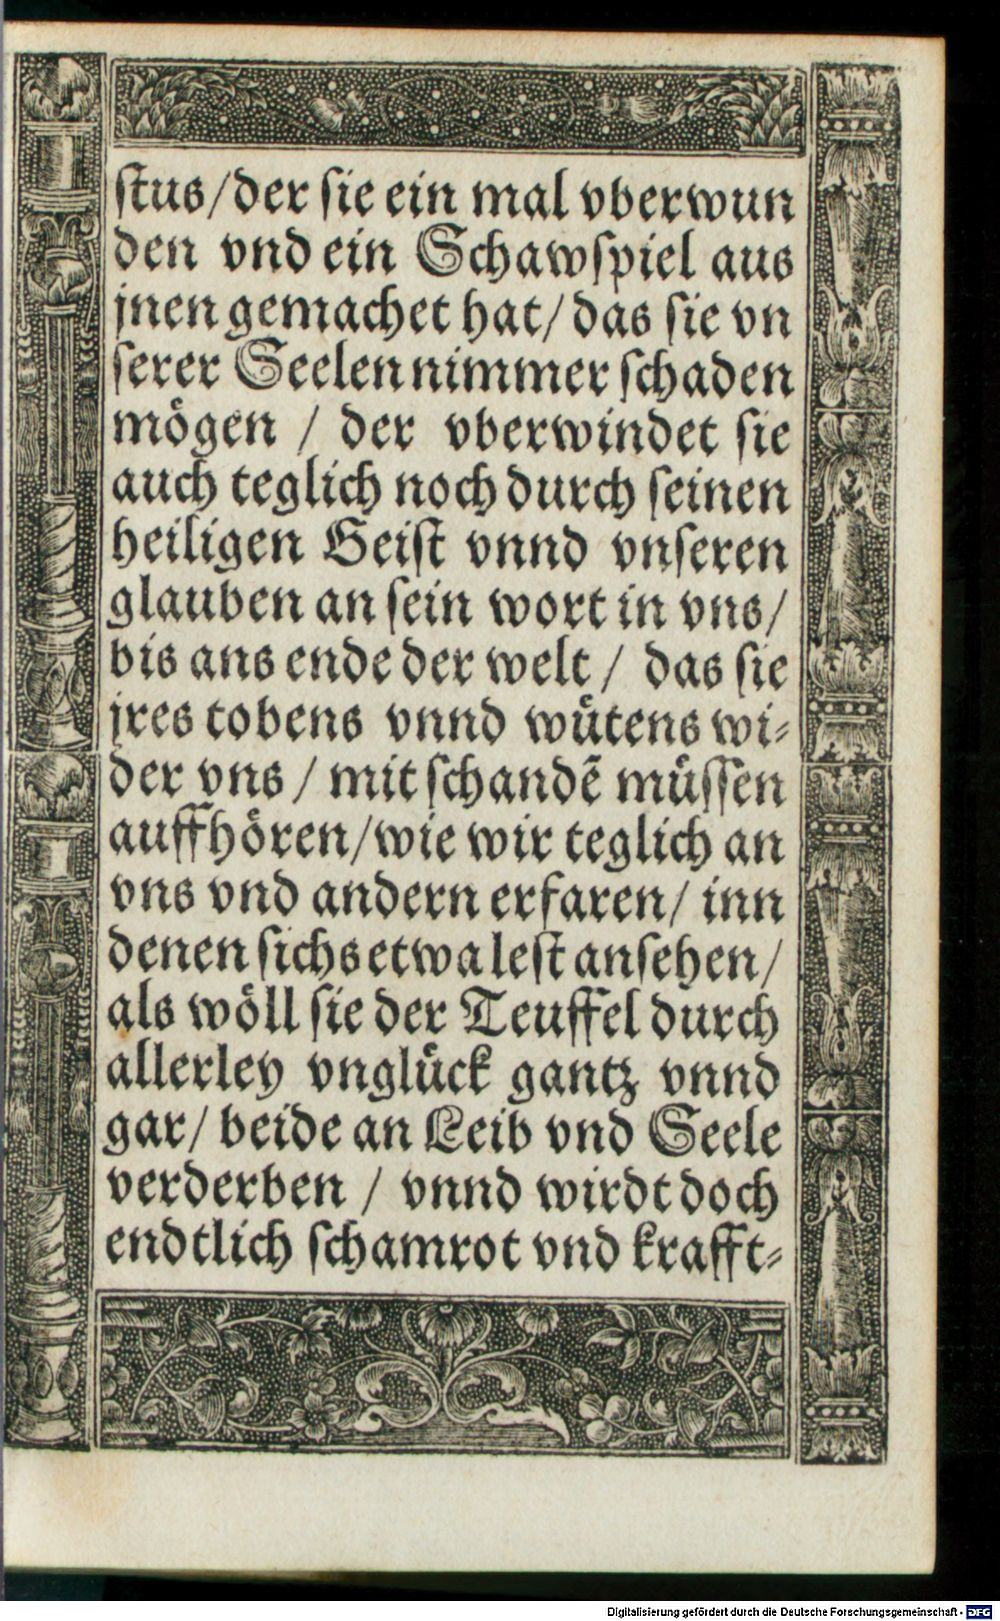 ſtus/der ſie ein mal vberwun
den vnd ein Schawſpiel aus
jnen gemachet hat/ das ſie vn
ſerer Seelen nimmer ſchaden
mögen / der vberwindet ſie
auch teglich noch durch ſeinen
heiligen Geiſt vnnd vnſeren
glauben an ſein wort in vns/
bis ans ende der welt / das ſie
jres tobens vnnd wütens wi⸗
der vns / mit ſchandẽ müſſen
auffhören/wie wir teglich an
vns vnd andern erfaren/ inn
denen ſichs etwa leſt anſehen/
als wöll ſie der Teuffel durch
allerley vnglück gantz vnnd
gar/ beide an Leib vnd Seele
verderben / vnnd wirdt doch
endtlich ſchamrot vnd krafft⸗
Digitalisierung gefördert durch die Deutsche Forschungsgemeinschaft - DFG